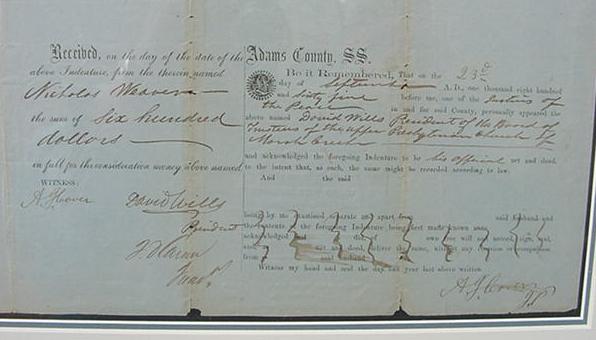 Received, on the day of the date of the
above Indenture, from the therein named
Nicholas Weaver
the sum of Six hundred
dollars
in full for the consideration money above named
WITNESS:
A J Cover
David Wills
President
Treas.
Adams County, SS.
Be it Remembered, That on the 23d
day of September A. D., one thousand eight hundred
and sixty five before me, one of the Justices of
the Peace in and for said County, personally appeared the
above named David Wills President of the Board of
Trustees of the upper Presbyterian Church of
Marsh Creek
and acknowledged the foregoing Indenture to be his official act and deed,
to the intent that, as such, the same might be recorded according to law.
And the said
being by me examined separate and apart from said husband and
the contents of the foregoing Indenture being first made known
acknowledged that did of own free will and accord, sign, seal,
and act and deed, deliver the same, without any coercion or compulsion
from said husband
Witness my hand and seal the day and year last above written.
A. J. Cover
J.P.